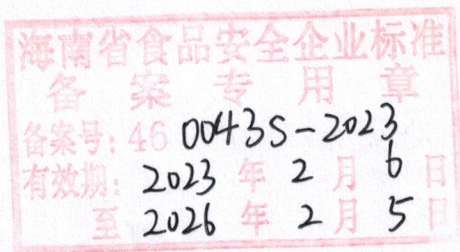 海南省食品安全企业标准
备案专用章
备案号：46 0043S-2023
有效期：2023年2月6日
至2026年2月5日